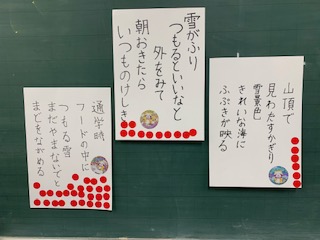 山頂で
見わたすかぎり
雪景色
きれいな海に
ふぶきが映る
雪がふり
つもるといいなと
外をみて
朝おきたら
いつものけしき
通学時
フードの中に
つもる雪
まだやまないでと
まどをながめる